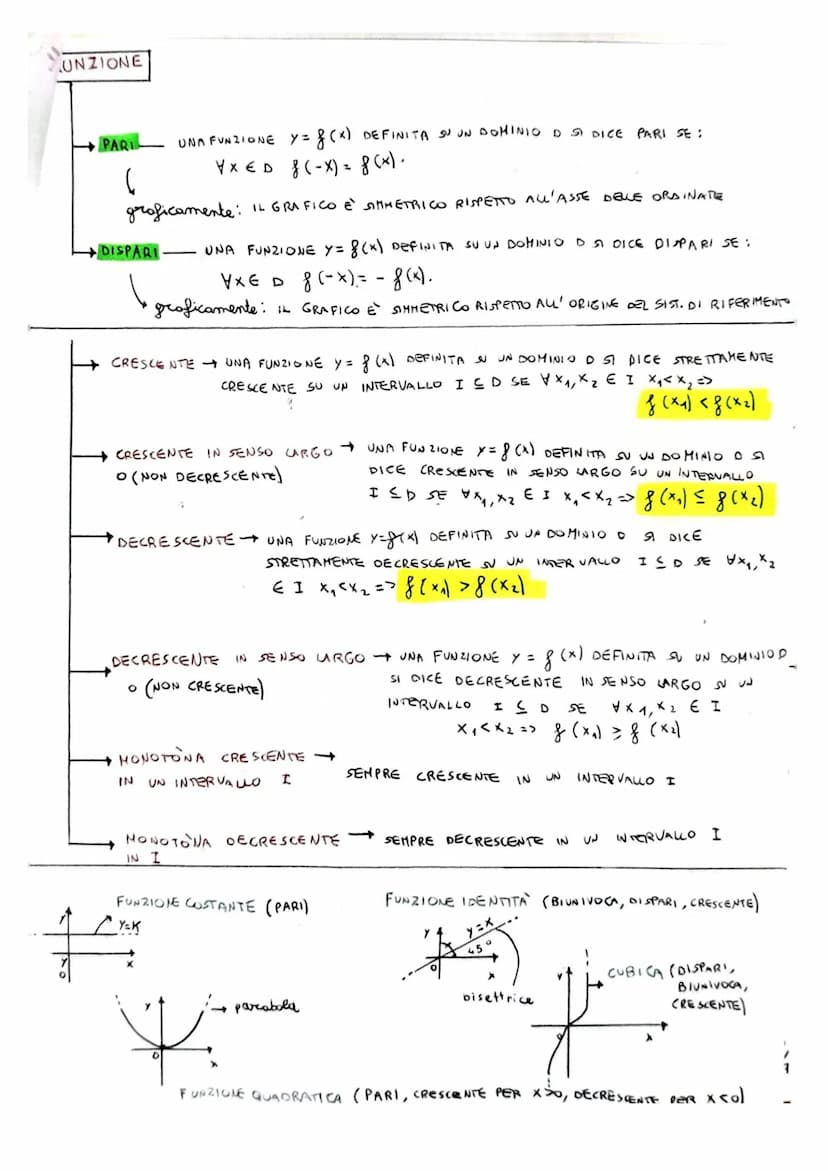 FUNZIONE
PARI UNA FUNZIONE y = f(x) DEFINITA SU UN DOMINIO D SI DICE PARI SE:
∀x ∈ D f(-x) = f(x).
graficamente: IL GRAFICO E' SIMMETRICO RISPETTO ALL'ASSE DELLE ORDINATE
DISPARI UNA FUNZIONE y = f(x) DEFINITA SU UN DOMINIO D SI DICE DISPARI SE:
∀x ∈ D f(-x) = - f(x).
graficamente: IL GRAFICO E' SIMMETRICO RISPETTO ALL'ORIGINE DEL SIST. DI RIFERIMENTO
CRESCENTE → UNA FUNZIONE y = f(x) DEFINITA SU UN DOMINIO D SI DICE STRETTAMENTE
CRESCENTE SU UN INTERVALLO I ⊆ D SE ∀x₁, x₂ ∈ I x₁<x₂ =>
f(x₁) < f(x₂)
CRESCENTE IN SENSO LARGO → UNA FUNZIONE y = f(x) DEFINITA SU UN DOMINIO D SI
O (NON DECRESCENTE) DICE CRESCENTE IN SENSO LARGO SU UN INTERVALLO
I ⊆ D SE ∀x₁, x₂ ∈ I x₁<x₂ => f(x₁) ≤ f(x₂)
DECRESCENTE → UNA FUNZIONE y=f(x) DEFINITA SU UN DOMINIO D SI DICE
STRETTAMENTE DECRESCENTE SU UN INTERVALLO I ⊆ D SE ∀x₁, x₂
∈ I x₁<x₂ => f(x₁) > f(x₂)
DECRESCENTE IN SENSO LARGO → UNA FUNZIONE y = f(x) DEFINITA SU UN DOMINIO D
O (NON CRESCENTE) SI DICE DECRESCENTE IN SENSO LARGO SU UN
INTERVALLO I ⊆ D SE ∀x₁, x₂ ∈ I
x₁<x₂ => f(x₁) ≥ f(x₂)
MONOTÒNA CRESCENTE →
IN UN INTERVALLO I SEMPRE CRESCENTE IN UN INTERVALLO I
MONOTÒNA DECRESCENTE → SEMPRE DECRESCENTE IN UN INTERVALLO I
IN I
FUNZIONE COSTANTE (PARI)
y
y=K
y
x
O
FUNZIONE IDENTITÀ (BIUNIVOCA, DISPARI, CRESCENTE)
y
y=x
45°
O
x
bisettrice
y
CUBICA (DISPARI,
BIUNIVOCA,
CRESCENTE)
O
x
y
→ parabola
O
x
FUNZIONE QUADRATICA (PARI, CRESCENTE PER x>0, DECRESCENTE PER x<0)